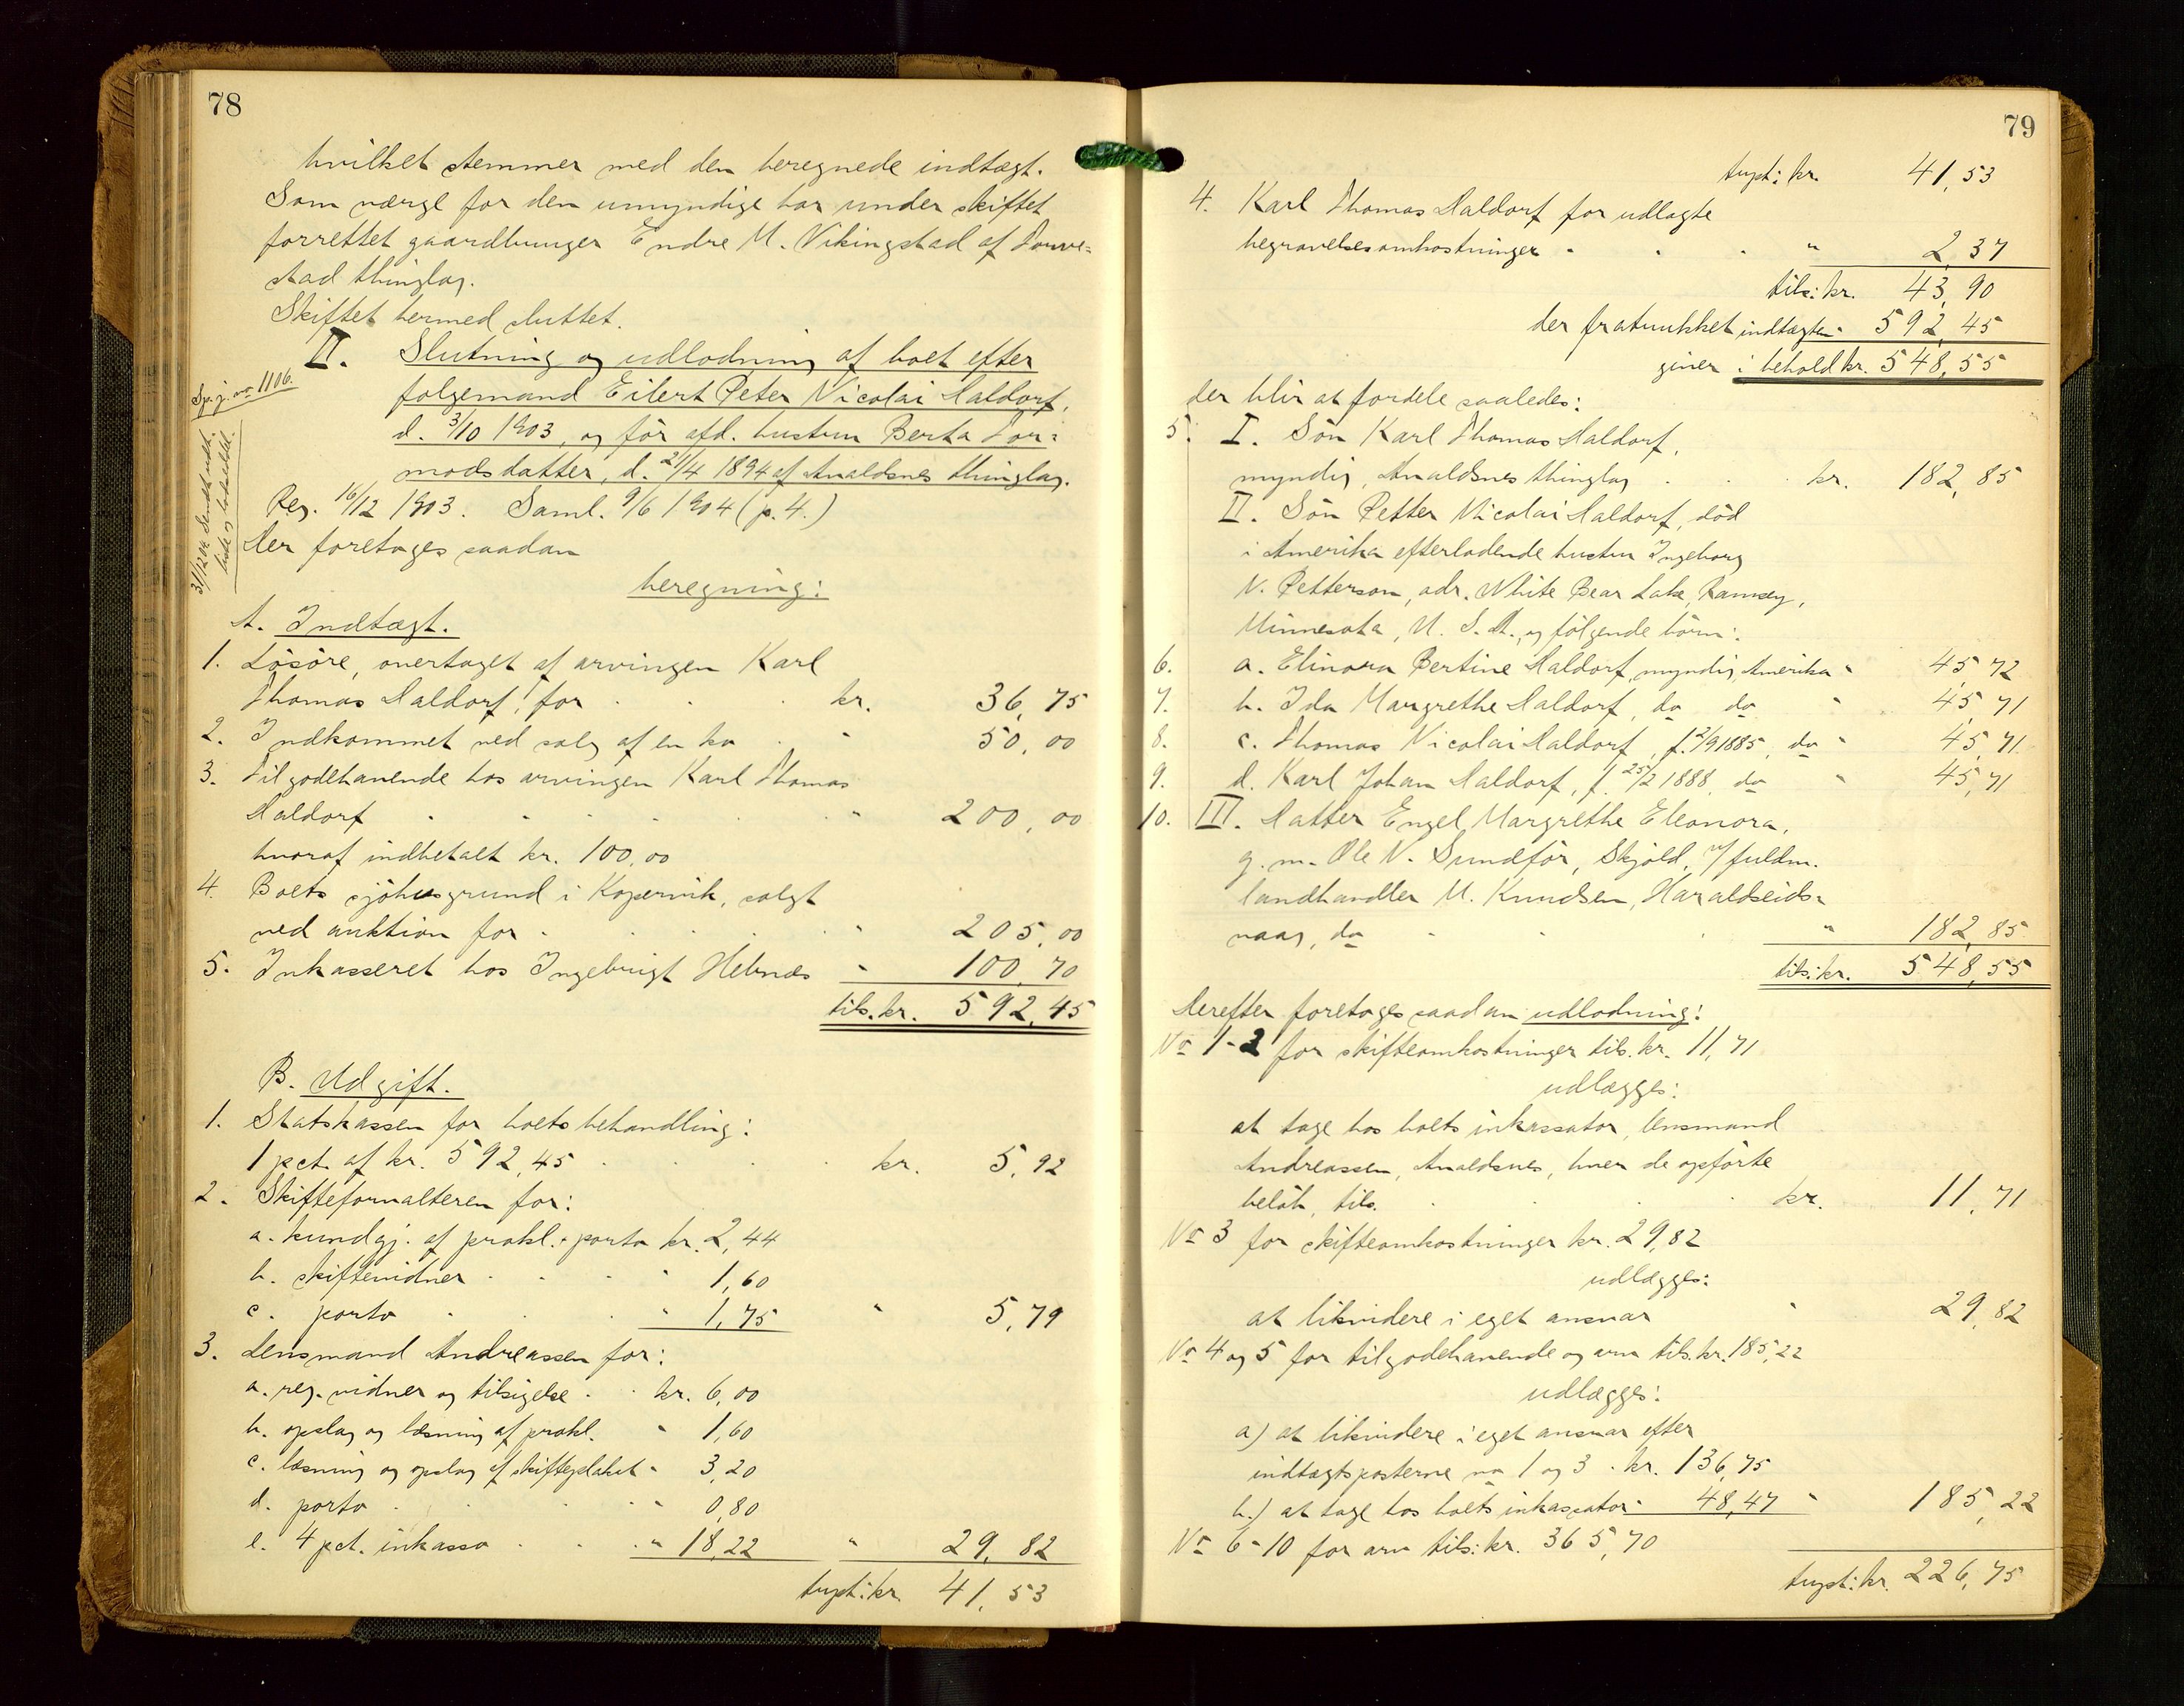 78
hvilket stemmer med den beregnede indtægt.
Som værge for den umyndige har under skiftet
forrettet gaardbruger Endre M. Vikingstad af Torve-
stad thinglag.
Skiftet hermed sluttet.
II. Slutning og udlodning af boet efter
følgemand Eilert Peter Nicolai Daldorf,
d. 3/10 1903, og før afd. hustru Berta Tor-
modsdatter, d. 21/4 1894 af Avaldsnes thinglag.
Sp. j. no 1106.
31/12 04 Sendt udsk.
liste og lodseddel.
Reg. 16/12 1903. Saml. 9/6 1904 (p. 4.)
Der foretages saadan
beregning:
A. Indtægt.
1. Løsøre, overtaget af arvingen Karl
Thomas Daldorf, for . . . kr. 36,75
2. Indkommet ved salg af en ko . " 50,00
3. Tilgodehavende hos arvingen Karl Thomas
Daldorf . . . . . " 200,00
hvoraf indbetalt kr. 100,00
4. Boets sjøhusgrund i Kopervik, solgt
ved auktion for . . . . " 205,00
5. Inkasseret hos Ingebrigt Helnæs " 100,70
tils. kr. 592,45
B. Udgift.
1. Statskassen for boets behandling:
1 pct. af kr. 592,45 . . . kr. 5,92
2. Skifteforvalteren for:
a. kundgj. af prokl. + porto kr. 2,44
b. skiftevidner . . . " 1,60
c. porto . . . " 1,75 " 5,79
3. Lensmand Andreassen for:
a. reg. vidner og tilsigelse . . kr. 6,00
b. opslag og læsning af prokl. " 1,60
c. læsning og opslag af skifteplakat " 3,20
d. porto . . . " 0,80
e. 4 pct. inkasso . . . " 18,22 " 29,82
trpt: kr. 41,53
79
trpt: kr. 41,53
4. Karl Thomas Daldorf for udlagte
begravelsesomkostninger . . . " 2,37
tils: kr. 43,90
der fratrukket indtægten " 592,45
giver i behold kr. 548,55
der blir at fordele saaledes:
5. I. Søn Karl Thomas Daldorf,
myndig, Avaldsnes thinglag . . kr. 182,85
II. Søn Petter Nicolai Daldorf, død
i Amerika efterladende hustru Ingeborg
N. Petterson, adr. White Bear Lake, Ramsey,
Minnesota, U. S. A., og følgende børn:
6. a. Elinora Bertine Daldorf, myndig, Amerika " 45,72
7. b. Ida Margrethe Daldorf, do do " 45,71
8. c. Thomas Nicolai Daldorf, f. 2/9 1885, do " 45,71
9. d. Karl Johan Daldorf, f. 25/2 1888, do " 45,71
10. III. Datter Engel Margrethe Eleonora,
g. m. Ole N. Sundfør, Skjold, v/ fuldm.
landhandler M. Knudsen, Haraldseids-
vaag, do . . . " 182,85
tils: kr. 548,55
Derefter foretages saadan udlodning:
No 1-2 for skifteomkostninger tils. kr. 11,71
udlægges:
at tage hos boets inkassator, lensmand
Andreassen, Avaldsnes, hver de opførte
beløb, tils. . . . kr. 11,71
No 3 for skifteomkostninger kr. 29,82
udlægges:
at likvidere i eget ansvar " 29,82
No 4 og 5 for tilgodehavende og arv tils. kr. 185,22
udlægges:
a) at likvidere i eget ansvar efter
indtægtsposterne no 1 og 3 . kr. 136,75
b.) at tage hos boets inkassator " 48,47 " 185,22
No 6-10 for arv tils: kr. 365,70
trpt: kr. 226,75